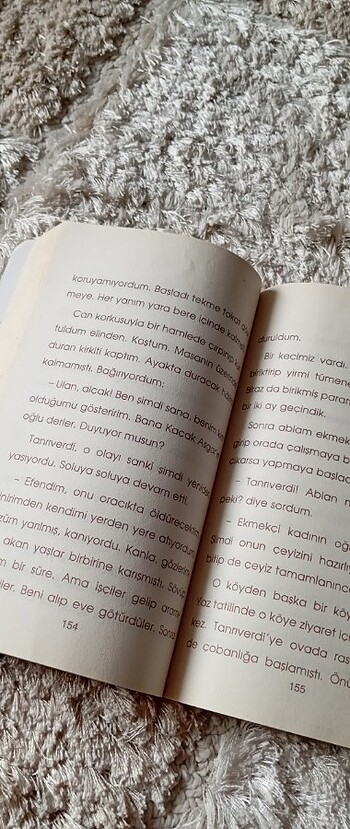 koruyamıyordum. Başladı tekme tokat
meye. Her yanım yara bere içinde
Can korkusuyla bir hamlede çırpınıp
tuldum elinden. Koştum. Masanın
duran kirkiti kaptım. Ayakta duracak
kalmamıştı. Bağırıyordum:
– Ulan, alçak! Ben şimdi sana, benim
olduğumu gösteririm. Bana Kaçak
oğlu derler. Duyuyor musun?
Tanrıverdi, o olayı sanki şimdi
yaşıyordu. Soluya soluya devam etti.
– Efendim, onu oracıkta
kendimi yerden yere atıyordum
yarılmış, kanıyordu. Kanla,
akan yaşlar birbirine karışmıştı.
bir süre. Ama işçiler gelip
Beni alıp eve götürdüler.
154
duruldum.
Bir keçimiz vardı.
biriktirip yirmi tümene
Biraz da birikmiş
bir iki ay geçindik.
Sonra ablam ekmek
girip orada çalışmaya
çıkarsa yapmaya
– Tanrıverdi! Ablan
peki? diye sordum.
– Ekmekçi kadının
Şimdi onun çeyizini
bitip de çeyiz
O köyden başka bir
Yaz tatilinde o köye ziyaret
kez. Tanrıverdi'ye ovada
de çobanlığa başlamıştı.
155